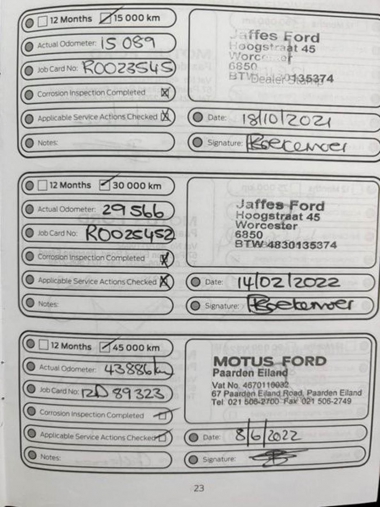 12 Months 15 000 km
Actual Odometer: 15 089
Job Card No: R0023545
Corrosion Inspection Completed
Applicable Service Actions Checked
Notes:
Jaffes Ford
Hoogstraat 45
6850
BTW 0135374
Dealer Stamp
Date: 18/10/2021
Signature:
12 Months 30 000 km
Actual Odometer: 29 566
Job Card No: R0025452
Corrosion Inspection Completed
Applicable Service Actions Checked
Notes:
Jaffes Ford
Hoogstraat 45
Worcester
6850
BTW 4830135374
Date: 14/02/2022
Signature:
12 Months 45 000 km
Actual Odometer: 43886km
Job Card No: 89323
Corrosion Inspection Completed
Applicable Service Actions Checked
Notes:
MOTUS FORD
Paarden Eiland
Vat No. 4670116032
67 Paarden Eiland Road, Paarden Eiland
Tel 021 506-2700 Fax 021 506-2749
Date: 8/6/2022
Signature:
23